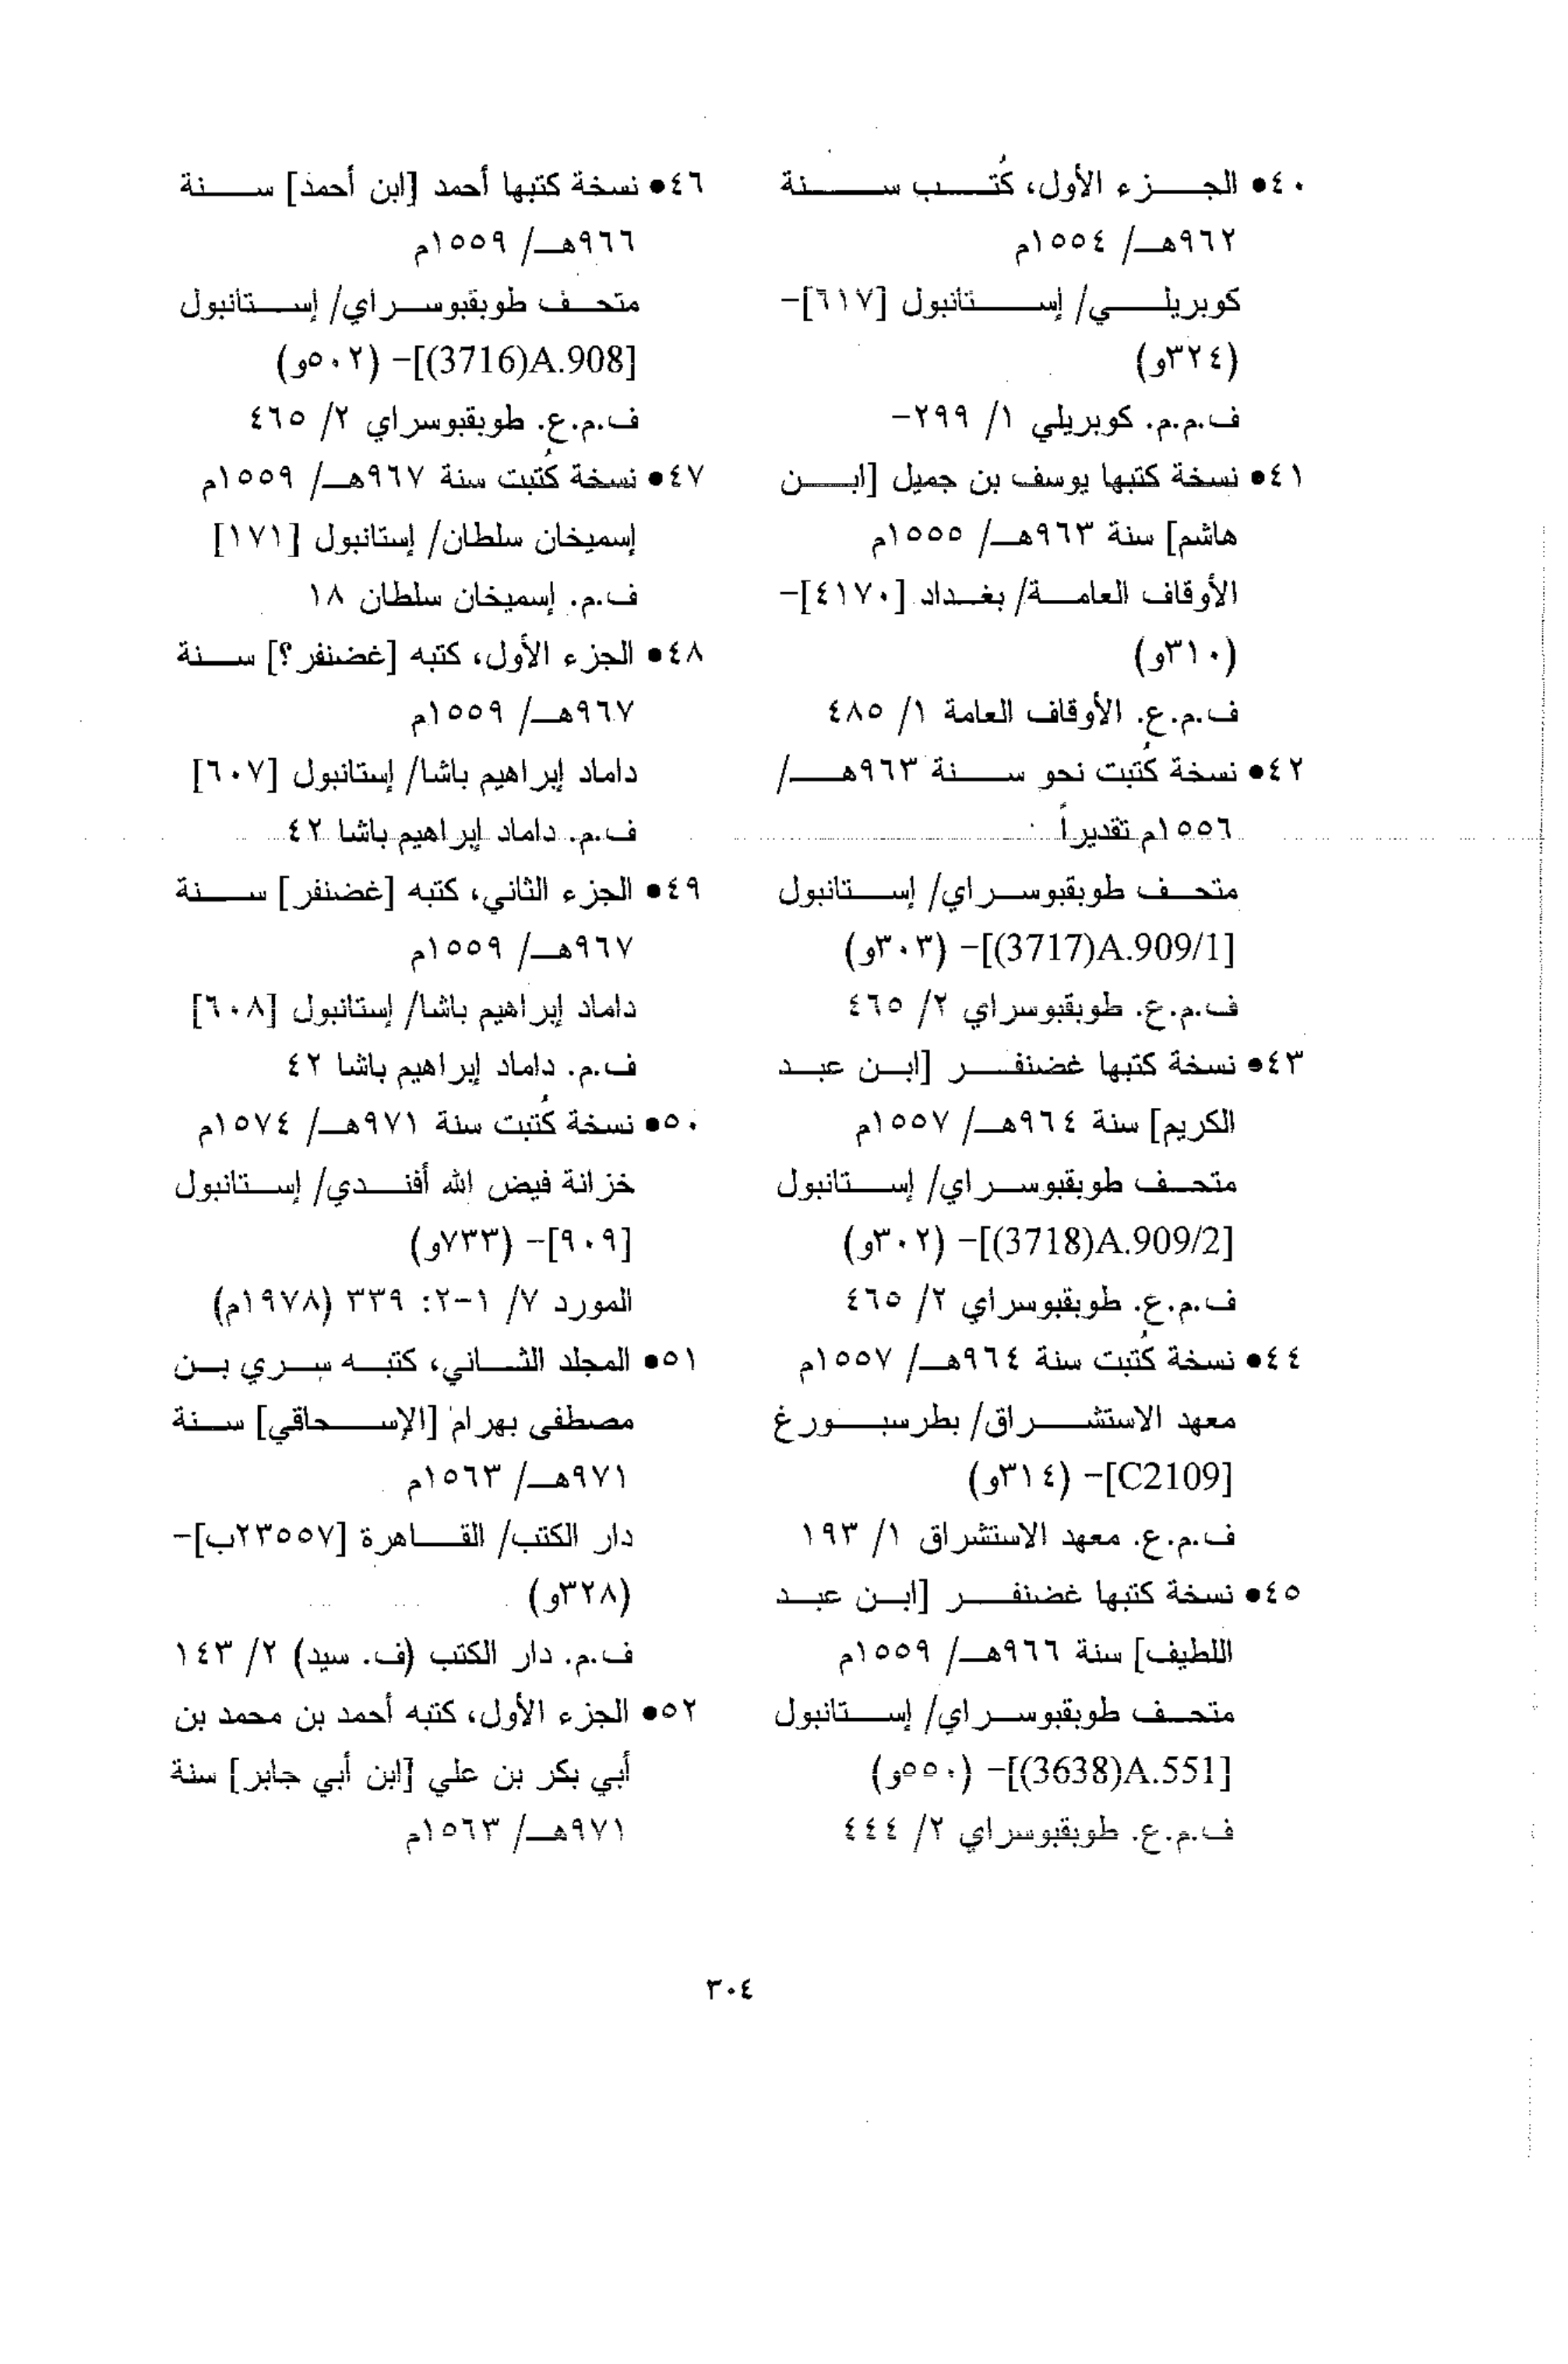 ٤٠• الجزء الأول، كُتب سنة
٩٦٢هـ/ ١٥٥٤م
كوبريلي/ إستانبول [٦١٧]-
(٣٢٤و)
ف.م.م. كوبريلي ١/ ٢٩٩-
٤١• نسخة كتبها يوسف بن جميل [ابن
هاشم] سنة ٩٦٣هـ/ ١٥٥٥م
الأوقاف العامة/ بغداد [٤١٧٠]-
(٣١٠و)
ف.م.ع. الأوقاف العامة ١/ ٤٨٥
٤٢• نسخة كُتبت نحو سنة ٩٦٣هـ/
١٥٥٦م تقديراً
متحف طوبقبوسراي/ إستانبول
[3717)A.909/1)]- (٣٠٣و)
ف.م.ع. طوبقبوسراي ٢/ ٤٦٥
٤٣• نسخة كتبها غضنفر [ابن عبد
الكريم] سنة ٩٦٤هـ/ ١٥٥٧م
متحف طوبقبوسراي/ إستانبول
[3718)A.909/2)]- (٣٠٢و)
ف.م.ع. طوبقبوسراي ٢/ ٤٦٥
٤٤• نسخة كُتبت سنة ٩٦٤هـ/ ١٥٥٧م
معهد الاستشراق/ بطرسبورغ
[C2109]- (٣١٤و)
ف.م.ع. معهد الاستشراق ١/ ١٩٣
٤٥• نسخة كتبها غضنفر [ابن عبد
اللطيف] سنة ٩٦٦هـ/ ١٥٥٩م
متحف طوبقبوسراي/ إستانبول
[3638)A.551)]- (٥٥٠و)
ف.م.ع. طوبقبوسراي ٢/ ٤٤٤
٤٦• نسخة كتبها أحمد [ابن أحمد] سنة
٩٦٦هـ/ ١٥٥٩م
متحف طوبقبوسراي/ إستانبول
[3716)A.908)]- (٥٠٢و)
ف.م.ع. طوبقبوسراي ٢/ ٤٦٥
٤٧• نسخة كُتبت سنة ٩٦٧هـ/ ١٥٥٩م
إسميخان سلطان/ إستانبول [١٧١]
ف.م. إسميخان سلطان ١٨
٤٨• الجزء الأول، كتبه [غضنفر؟] سنة
٩٦٧هـ/ ١٥٥٩م
داماد إبراهيم باشا/ إستانبول [٦٠٧]
ف.م. داماد إبراهيم باشا ٤٢
٤٩• الجزء الثاني، كتبه [غضنفر] سنة
٩٦٧هـ/ ١٥٥٩م
داماد إبراهيم باشا/ إستانبول [٦٠٨]
ف.م. داماد إبراهيم باشا ٤٢
٥٠• نسخة كُتبت سنة ٩٧١هـ/ ١٥٧٤م
خزانة فيض الله أفندي/ إستانبول
[٩٠٩]- (٧٣٣و)
المورد ٧/ ١-٢: ٣٣٩ (١٩٧٨م)
٥١• المجلد الثاني، كتبه سري بن
مصطفى بهرام [الإسحاقي] سنة
٩٧١هـ/ ١٥٦٣م
دار الكتب/ القاهرة [٢٣٥٥٧ب]-
(٣٢٨و)
ف.م. دار الكتب (ف. سيد) ٢/ ١٤٣
٥٢• الجزء الأول، كتبه أحمد بن محمد بن
أبي بكر بن علي [ابن أبي جابر] سنة
٩٧١هـ/ ١٥٦٣م
٣٠٤